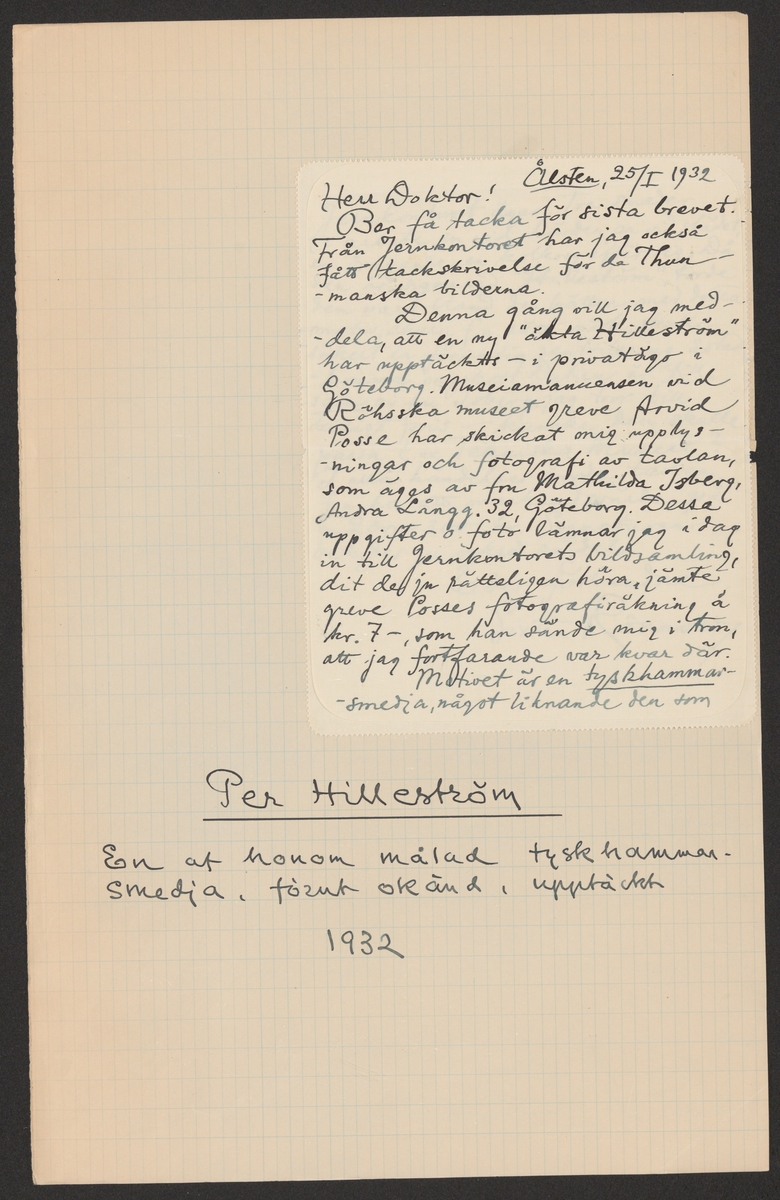 Ålsten, 25/I 1932
Herr Doktor!
Ber få tacka för sista brevet.
Från Jernkontoret har jag också
fått tackskrivelse för de Thun-
-manska bilderna.
Denna gång vill jag med-
-dela, att en ny "äkta Hilleström"
har upptäckts – i privatägo i
Göteborg. Museiamanuensen vid
Röhsska museet greve Arvid
Posse har skickat mig upplys-
-ningar och fotografi av tavlan,
som äges av fru Mathilda Isberg,
Andra Långg. 32, Göteborg. Dessa
uppgifter o. foto lämnar jag i dag
in till Jernkontorets bildsamling,
dit de ju rätteligen höra, jämte
greve Posses fotografiräkning å
kr. 7-, som han sände mig i tron,
att jag fortfarande var kvar där.
Motivet är en tyskhammar-
-smedja, något liknande den som
Per Hilleström
En af honom målad tyskhammar-
smedja, förut okänd, upptäckt
1932